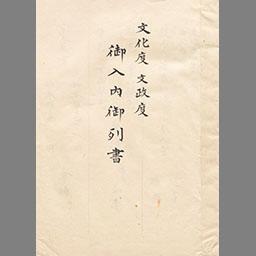 文化度文政度
御入内御列書